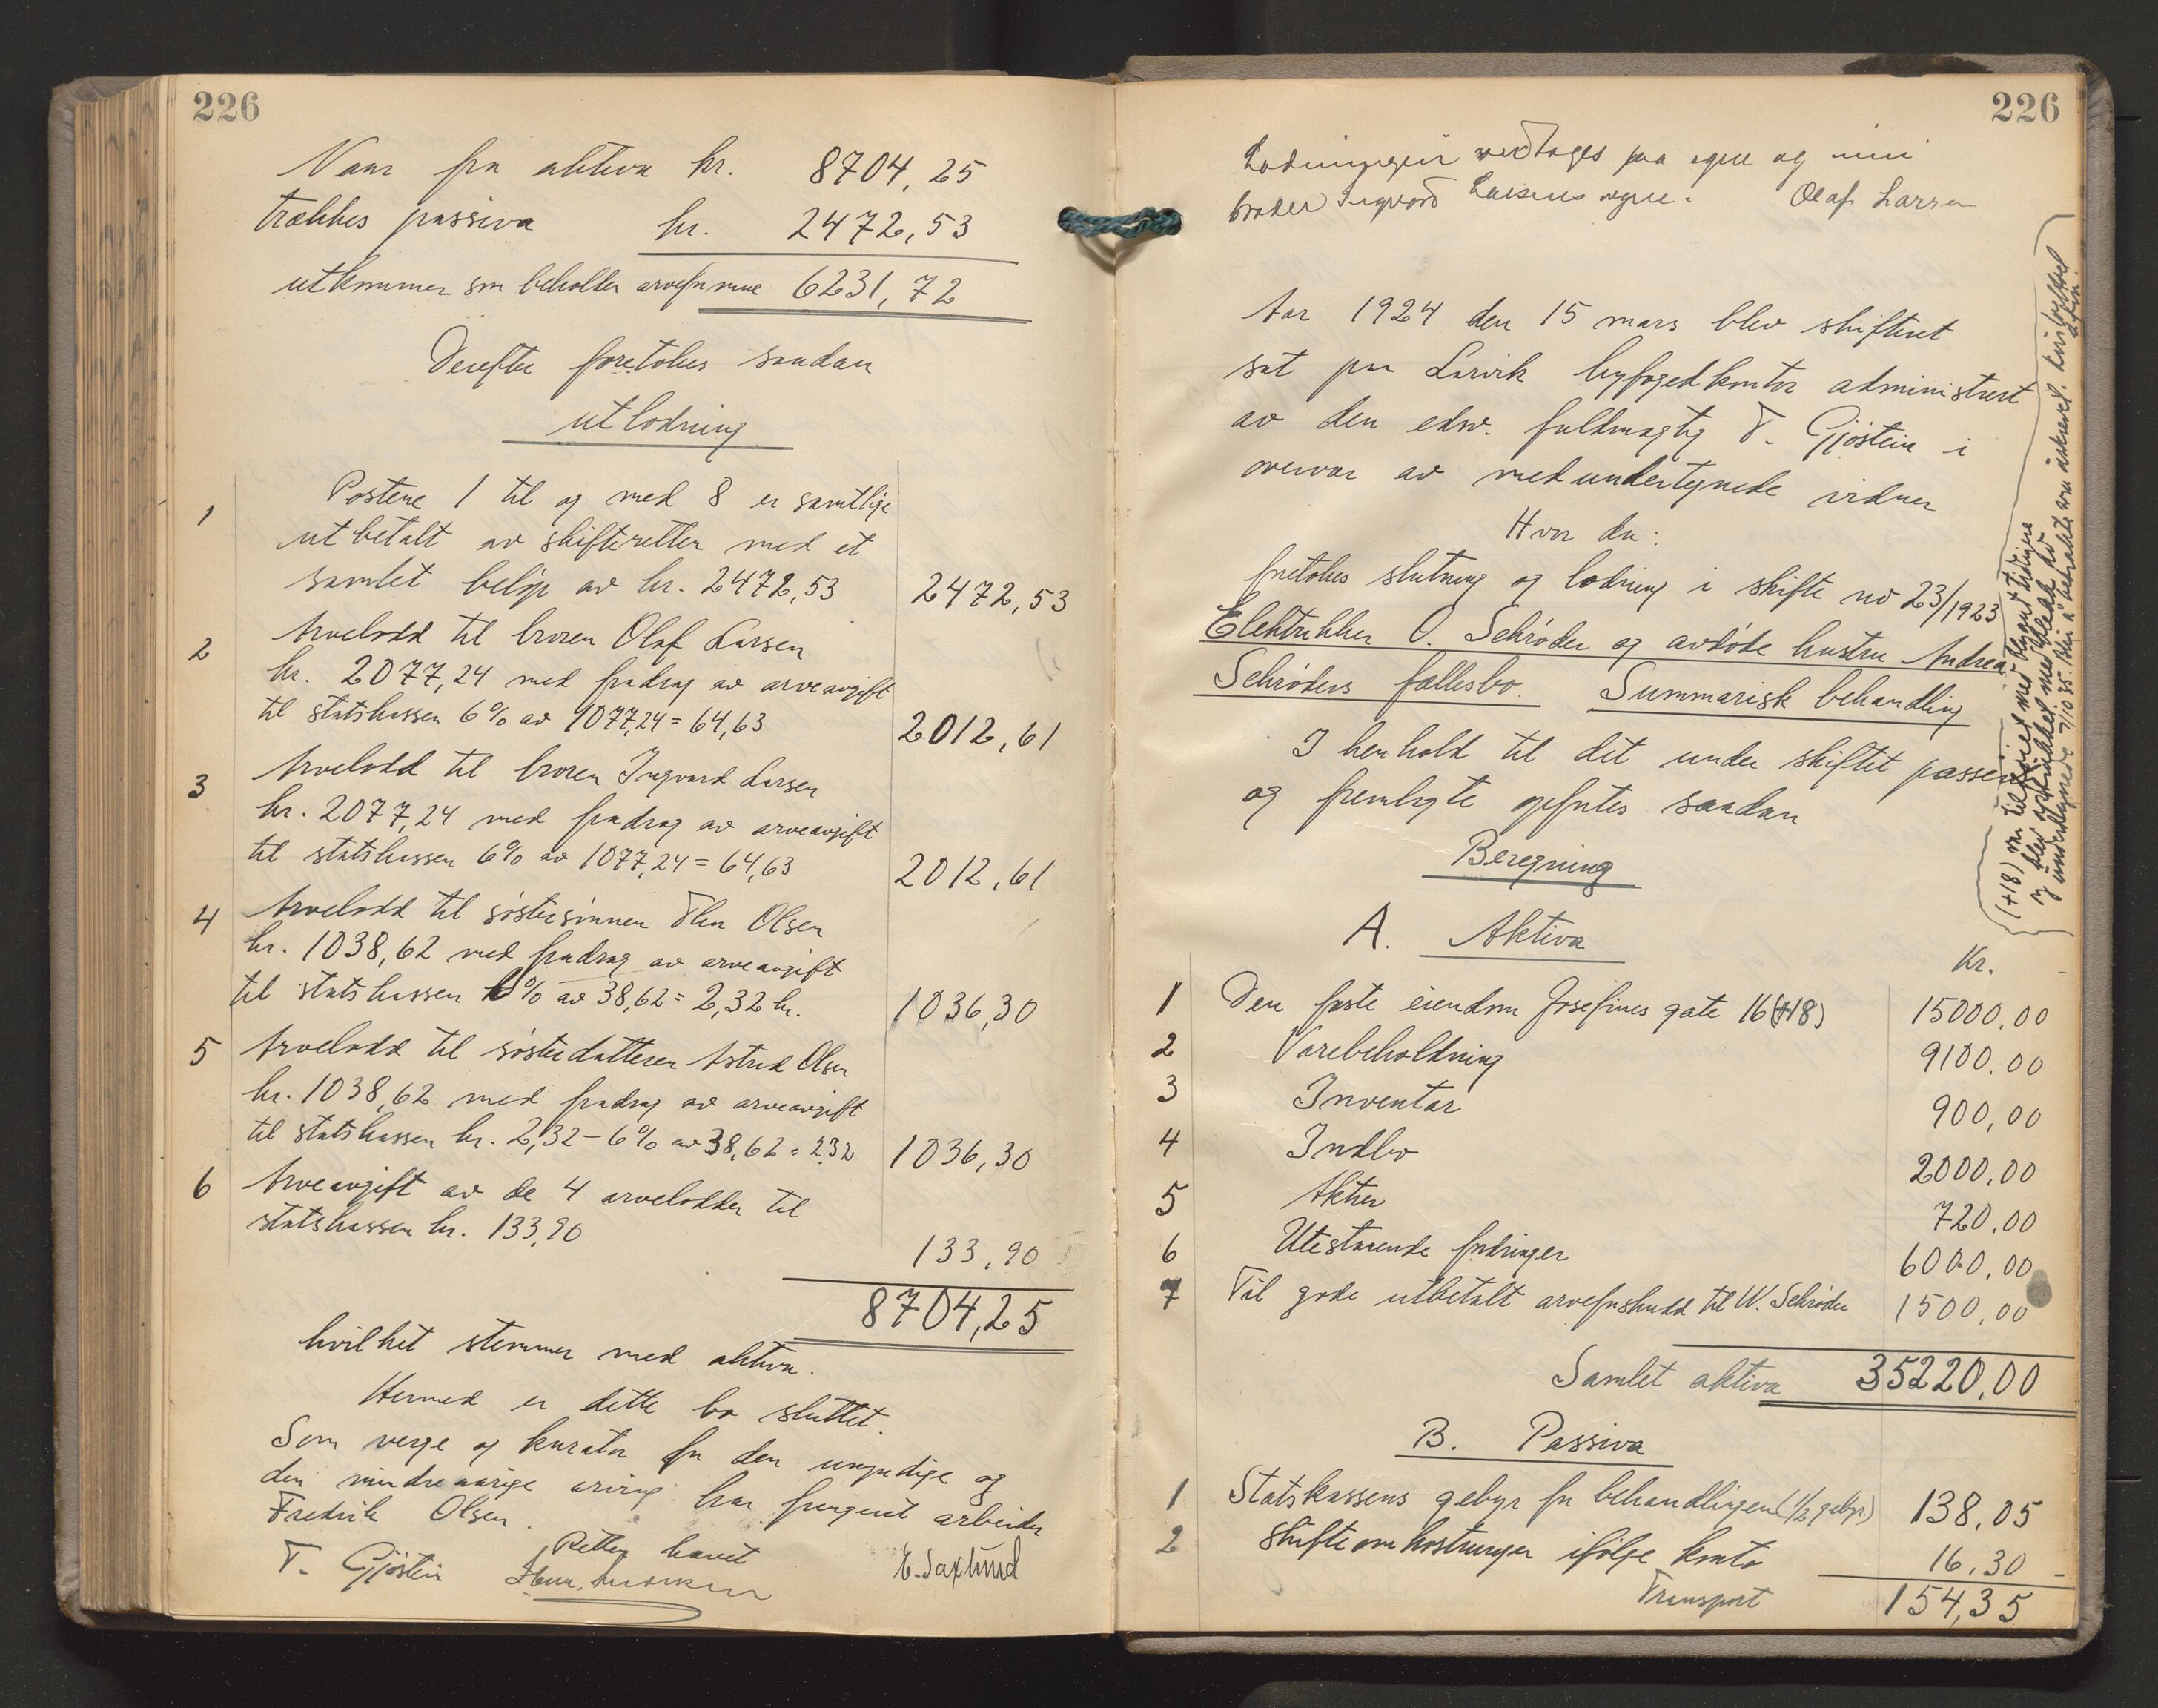 226
Naar fra aktiva kr. 8704,25
trækkes passiva kr. 2472,53
utkommer som beholden arveformue 6231,72
Derefter foretokes saadan
utlodning
1 Postene 1 til og med 8 er samtlige
utbetalt av skifteretten med et
samlet beløp av kr. 2472,53 2472,53
2 Arvelodd til broren Olaf Larsen
kr. 2077,24 med fradrag av arveavgift
til statskassen 6% av 1077,24 = 64,63 2012,61
3 Arvelodd til broren Ingvard Larsen
kr. 2077,24 med fradrag av arveavgift
til statskassen 6% av 1077,24 = 64,63 2012,61
4 Arvelodd til søstersønnen Thor Olsen
kr. 1038,62 med fradrag av arveavgift
til statskassen 6% av 38,62 = 2,32 kr. 1036,30
5 Arvelodd til søsterdatteren Astrid Olsen
kr. 1038,62 med fradrag av arveavgift
til statskassen kr. 2,32 - 6% av 38,62 = 2,32 1036,30
6 Arveavgift av de 4 arvelodder til
statskassen kr. 133,90
133,90
8704,25
hvilket stemmer med aktiva.
Hermed er dette bo sluttet.
Som verge og kurator for den umyndige og
den mindreaarige arving har fungeret arbeider
Fredrik Olsen.
Retten hævet
T. Gjøstein E. Saxlund
226
Lodningen vedtages paa egne og min
broder Ingvard Larsens vegne. Olaf Larsen
Aar 1924 den 15 mars blev skifteret
sat paa Larvik byfogedkontor administrert
av den edsv. fuldmægtig T. Gjøstein i
overvær av medundertegnede vidner
Hvor da:
foretokes slutning og lodning i skifte no 23/1923
Elektrikker O. Schrøder og avdøde hustru Andrea
Schrøders fællesbo. Summarisk behandling
I henhold til det under skiftet passerte
og fremlagte opførtes saadan
Beregning
A. Aktiva
Kr.
1 Den faste eiendom Josefines gate 16 (+18) 15000,00
2 Varebeholdning 9100,00
3 Inventar 900,00
4 Indbo 2000,00
5 Aktier 720,00
6 Utestaaende fordringer 6000,00
7 Til gode utbetalt arveforskudd til W. Schrøder 1500,00
Samlet aktiva 35220,00
B. Passiva
1 Statskassens gebyr for behandlingen (1/2 gebyr) 138,05
2 Skifteomkostninger ifølge konto 16,30
Transport 154,35
(+18) er tilføiet med blyant tidligere
og blev med blekk av
undertegnede 7/10 35. Blir å betrakte som